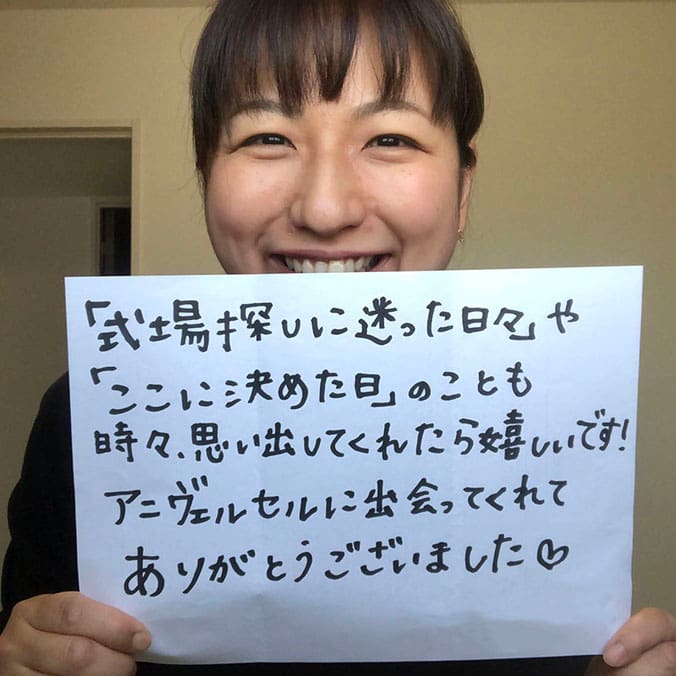 「式場探しに迷った日々」や
「ここに決めた日」のことも
時々、思い出してくれたら嬉しいです!
アニヴェルセルに出会ってくれて
ありがとうございました♡